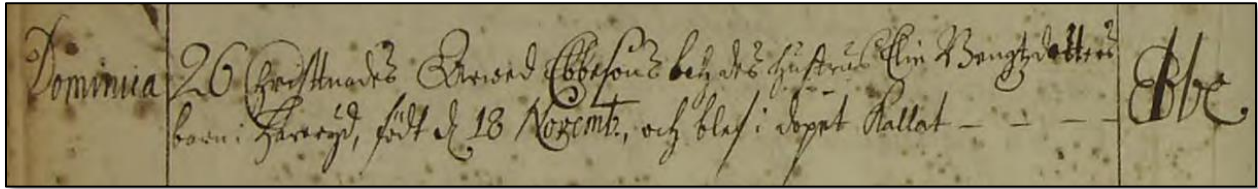 Dominica 26 Christnades Arwed Ebbesons och des hustrus Elin Bengtzdotters Ebbe
barn i Harreryd, födt d. 18 Novemb:, och blef i dopet kallat – – – –